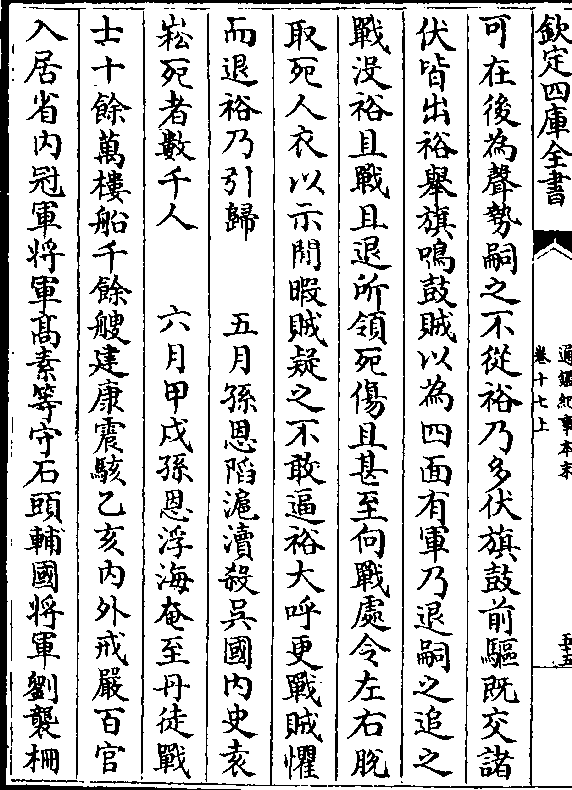 欽定四庫全書
通鑑紀事本末
卷十七上
五十五
可在後為聲勢嗣之不從裕乃多伏旗鼓前驅既交諸
伏皆出裕舉旗鳴鼓賊以為四面有軍乃退嗣之追之
戰没裕且戰且退所領死傷且甚至向戰處令左右脫
取死人衣以示閒暇賊疑之不敢逼裕大呼更戰賊懼
而退裕乃引歸　五月孫恩陷滬瀆殺吳國內史袁
崧死者數千人　六月甲戌孫恩浮海奄至丹徒戰
士十餘萬樓船千餘艘建康震駭乙亥內外戒嚴百官
入居省內冠軍將軍髙素等守石頭輔國將軍劉襲柵